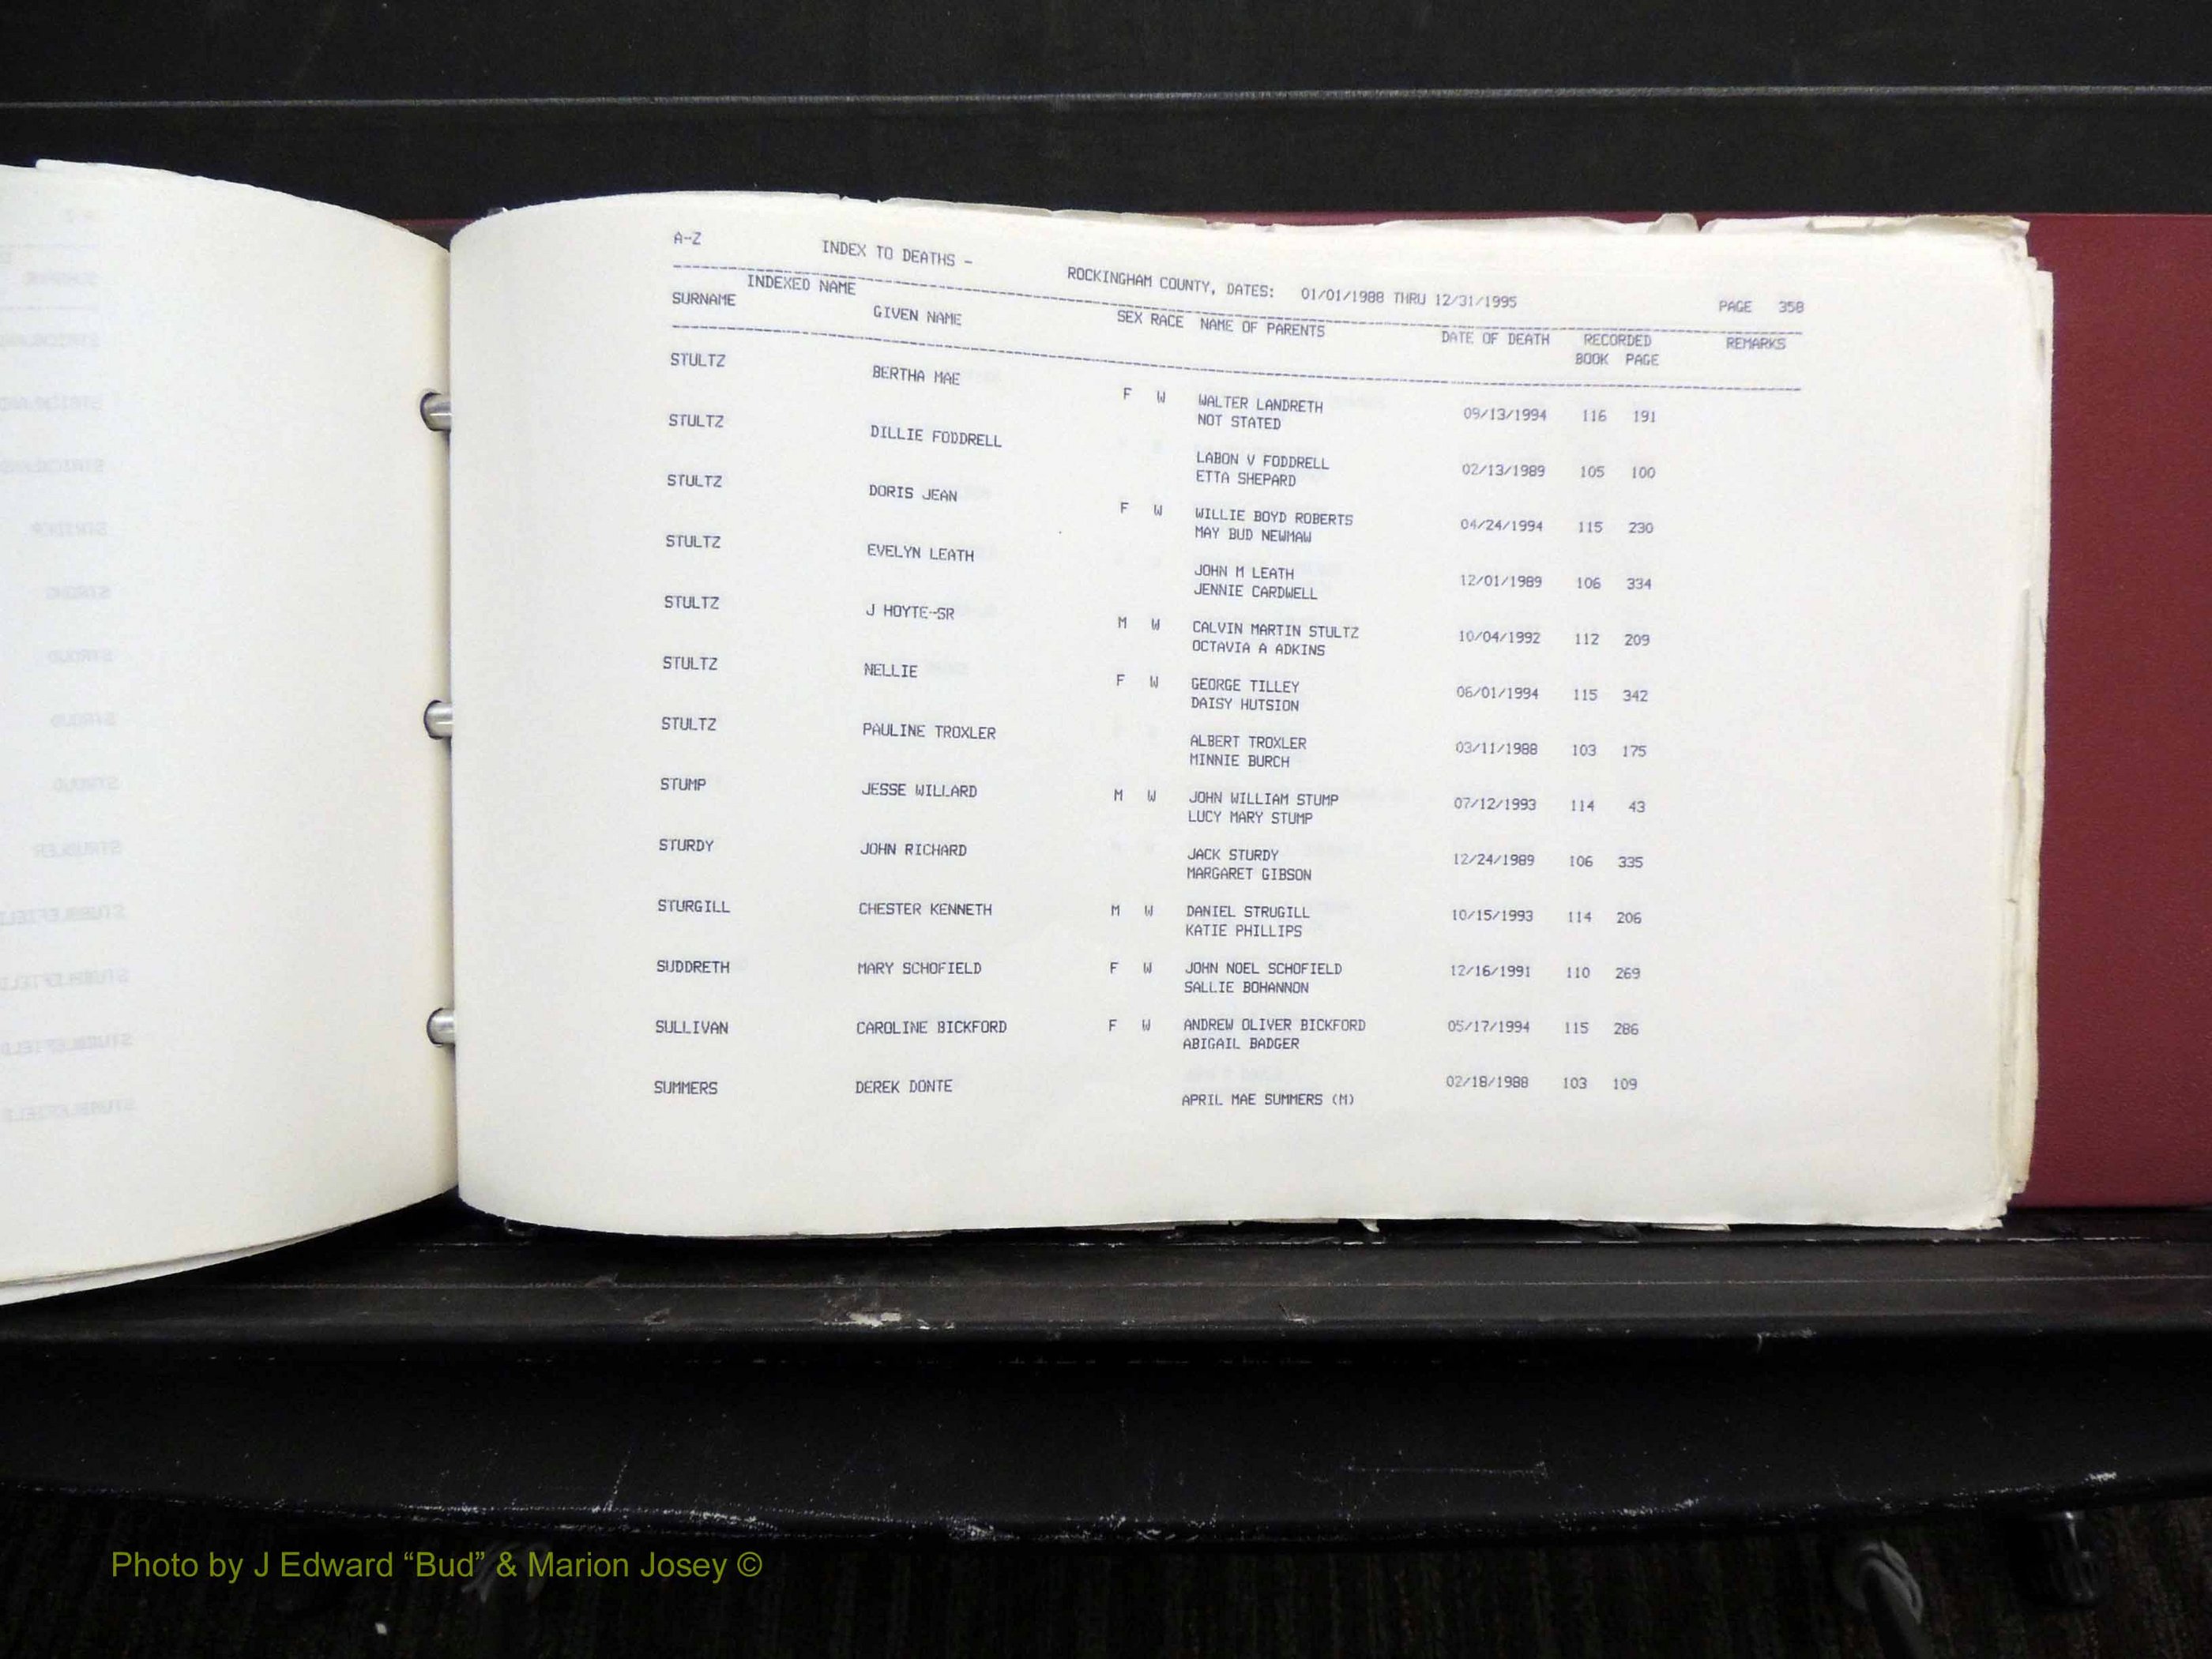 A-Z INDEX TO DEATHS - ROCKINGHAM COUNTY, DATES: 01/01/1988 THRU 12/31/1995 PAGE 358
INDEXED NAME
SURNAME GIVEN NAME SEX RACE NAME OF PARENTS DATE OF DEATH RECORDED REMARKS
BOOK PAGE
STULTZ BERTHA MAE F W WALTER LANDRETH 09/13/1994 116 191
NOT STATED
STULTZ DILLIE FODDRELL LABON V FODDRELL 02/13/1989 105 100
ETTA SHEPARD
STULTZ DORIS JEAN F W WILLIE BOYD ROBERTS 04/24/1994 115 230
MAY BUD NEWMAW
STULTZ EVELYN LEATH JOHN M LEATH 12/01/1989 106 334
JENNIE CARDWELL
STULTZ J HOYTE-SR M W CALVIN MARTIN STULTZ 10/04/1992 112 209
OCTAVIA A ADKINS
STULTZ NELLIE F W GEORGE TILLEY 06/01/1994 115 342
DAISY HUTSION
STULTZ PAULINE TROXLER ALBERT TROXLER 03/11/1988 103 175
MINNIE BURCH
STUMP JESSE WILLARD M W JOHN WILLIAM STUMP 07/12/1993 114 43
LUCY MARY STUMP
STURDY JOHN RICHARD JACK STURDY 12/24/1989 106 335
MARGARET GIBSON
STURGILL CHESTER KENNETH M W DANIEL STRUGILL 10/15/1993 114 206
KATIE PHILLIPS
SUDDRETH MARY SCHOFIELD F W JOHN NOEL SCHOFIELD 12/16/1991 110 269
SALLIE BOHANNON
SULLIVAN CAROLINE BICKFORD F W ANDREW OLIVER BICKFORD 05/17/1994 115 286
ABIGAIL BADGER
SUMMERS DEREK DONTE 02/18/1988 103 109
APRIL MAE SUMMERS (M)
Photo by J Edward “Bud” & Marion Josey ©